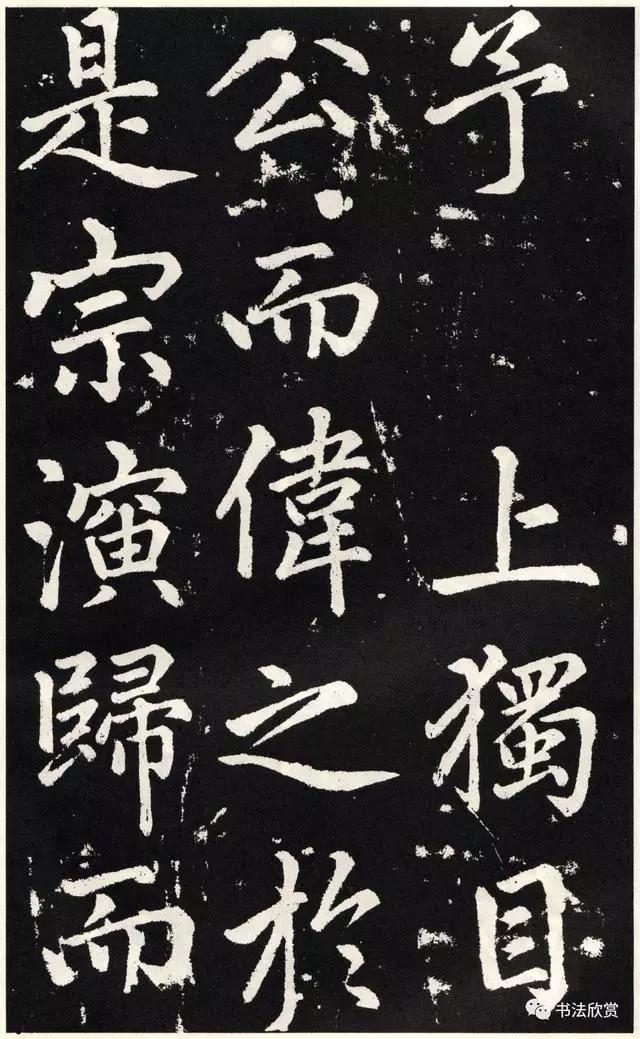 予 上獨目
公而偉之於
是宗演歸而
书法欣赏